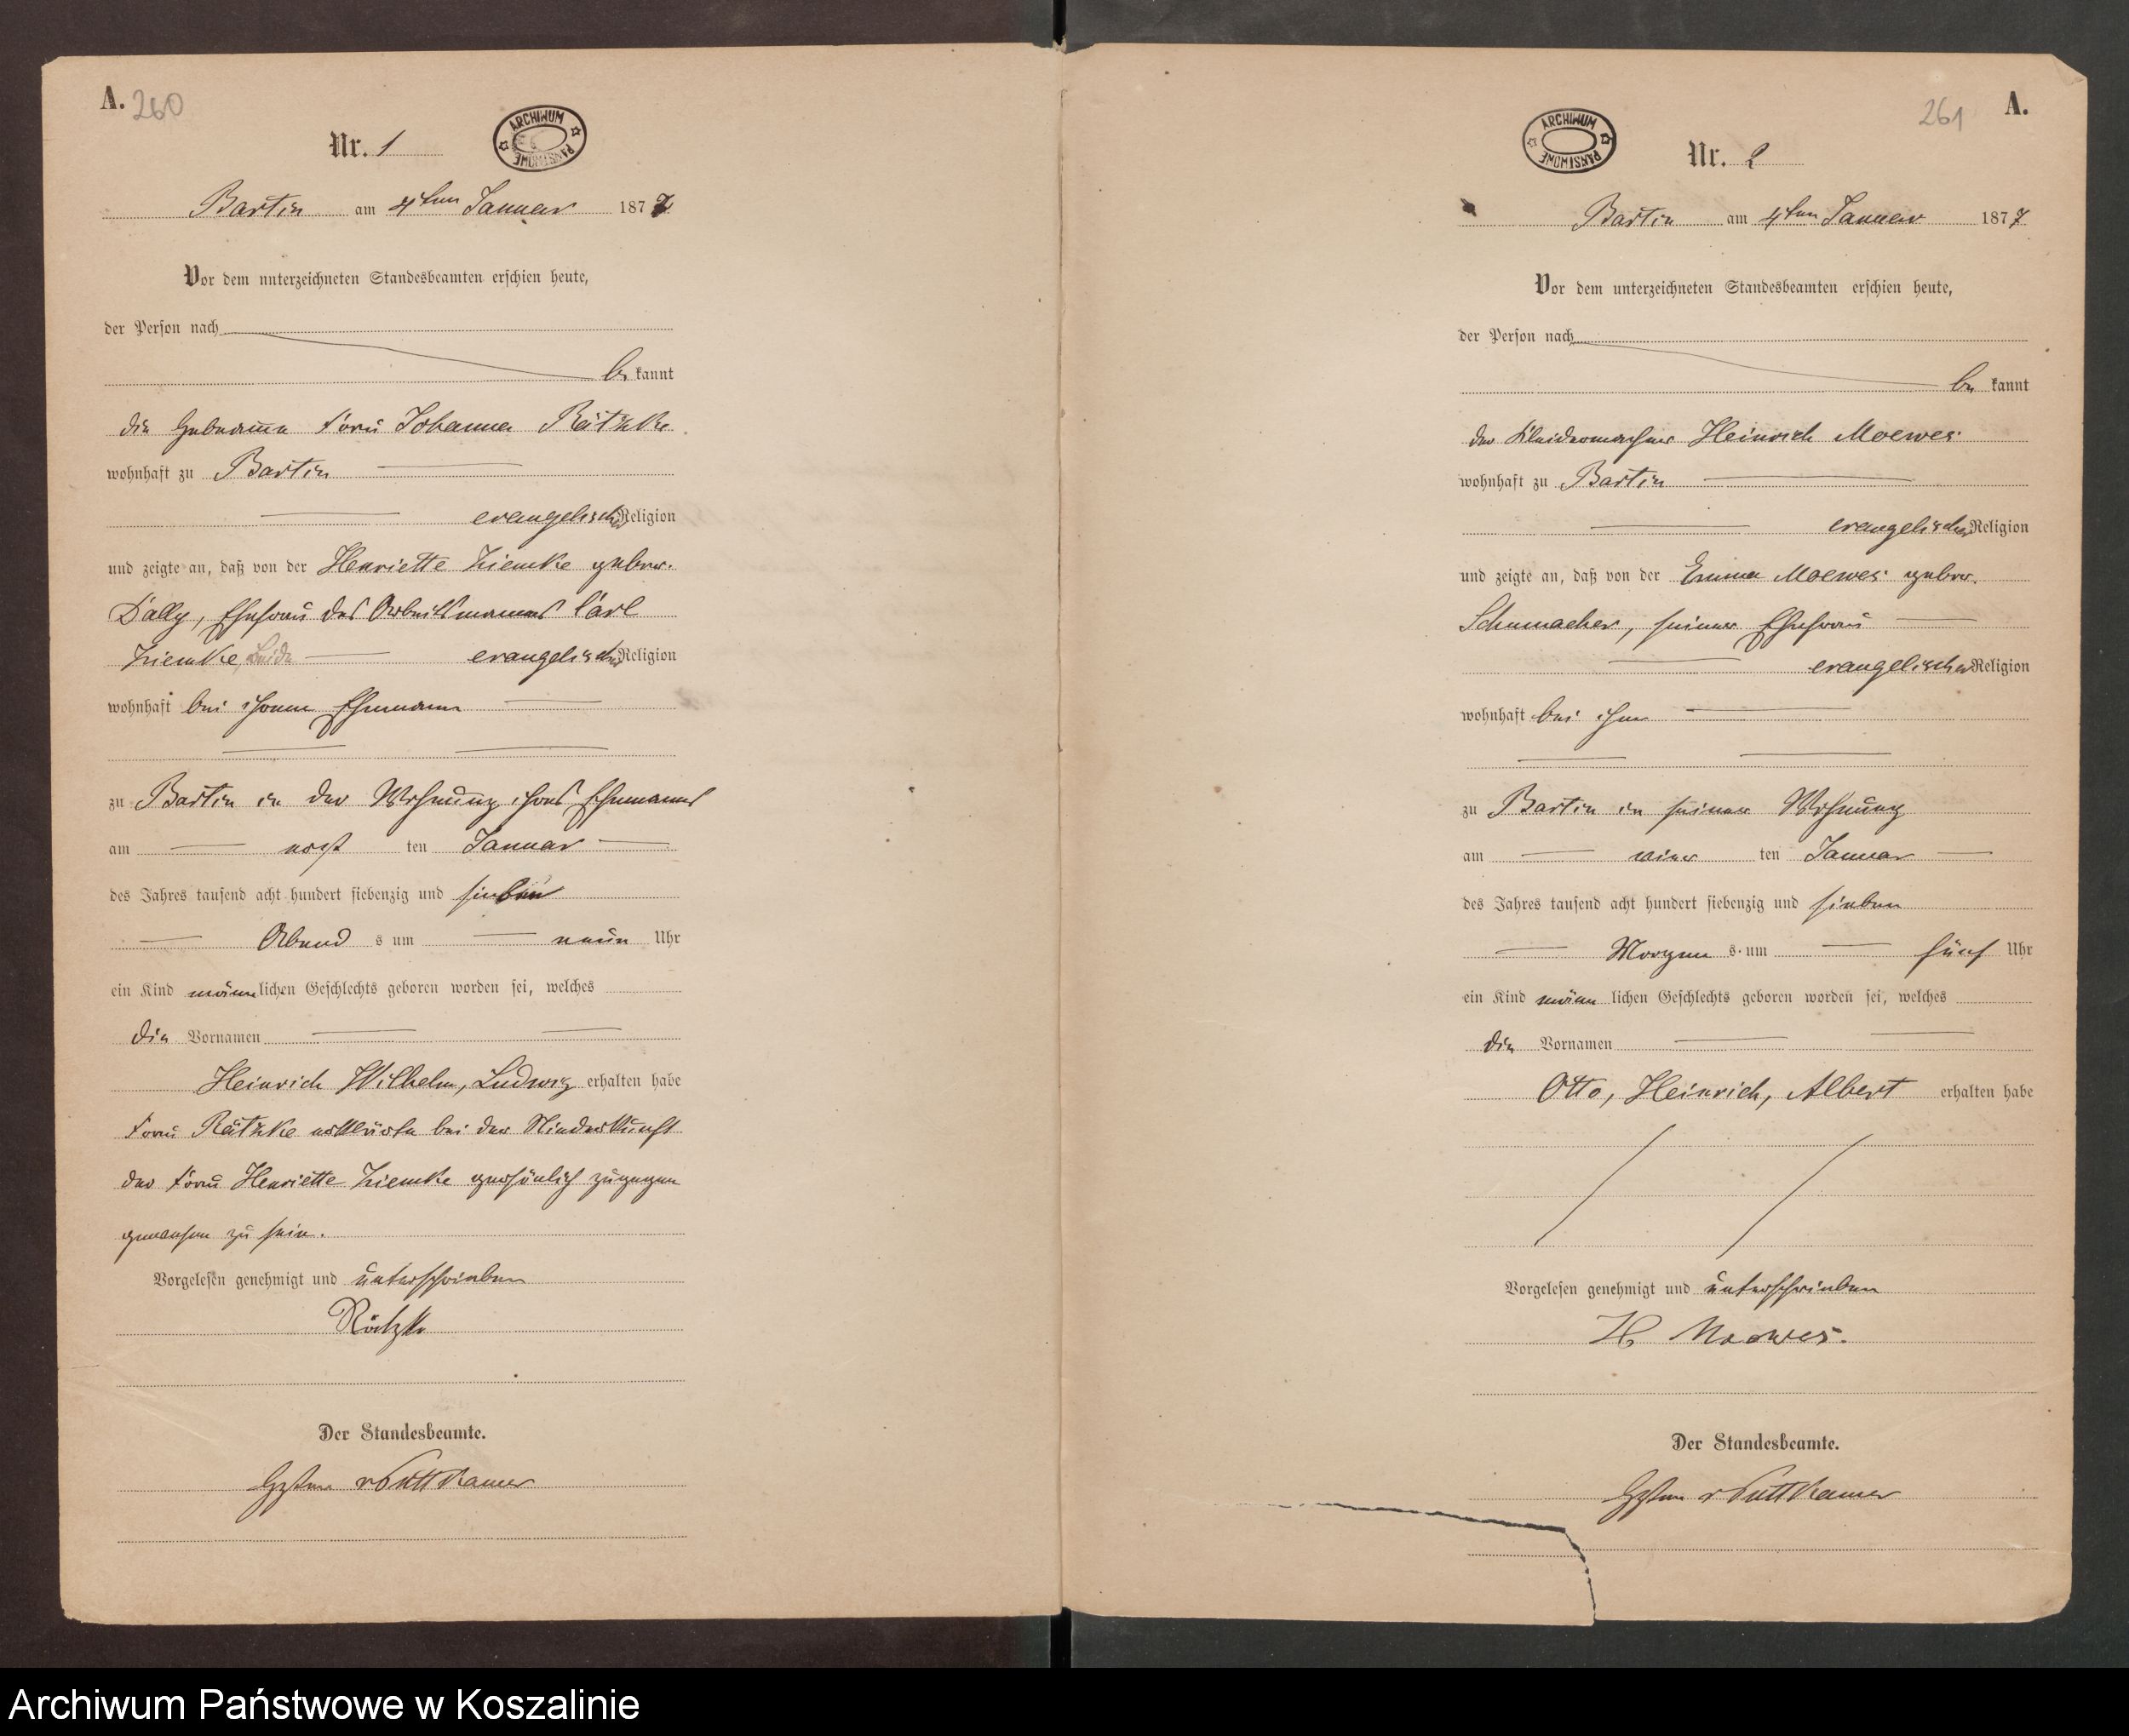 A. 260
Nr. 1
ARCHIWUM PAŃSTWOWE
Bartin am 4ten Januar 1877
Vor dem unterzeichneten Standesbeamten erschien heute,
der Person nach
be kannt
die Hebamme Frau Johanna Rätzke
wohnhaft zu Bartin
evangelischer Religion
und zeigte an, daß von der Henriette Ziemke gebor.
Dally, Ehefrau des Arbeitsmannes Carl
Ziemke, beide evangelischer Religion
wohnhaft bei ihrem Ehemann
zu Bartin in der Wohnung ihres Ehemanns
am ersten Januar
des Jahres tausend acht hundert siebenzig und sieben
Abend s um neun Uhr
ein Kind männlichen Geschlechts geboren worden sei, welches
die Vornamen
Heinrich Wilhelm, Ludwig erhalten habe
Frau Rätzke erklärte bei der Niederkunft
der Frau Henriette Ziemke persönlich zugegen
gewesen zu sein.
Vorgelesen genehmigt und unterschrieben
Rätzke
Der Standesbeamte.
v Puttkamer
261 A.
Nr. 2
ARCHIWUM PAŃSTWOWE
Bartin am 4ten Januar 1877
Vor dem unterzeichneten Standesbeamten erschien heute,
der Person nach
be kannt
der Kleidermacher Heinrich Moewes
wohnhaft zu Bartin
evangelischer Religion
und zeigte an, daß von der Emma Moewes gebor.
Schumacher, seiner Ehefrau
evangelischer Religion
wohnhaft bei ihm
zu Bartin in seiner Wohnung
am vier ten Januar
des Jahres tausend acht hundert siebenzig und sieben
Morgen s um fünf Uhr
ein Kind männ lichen Geschlechts geboren worden sei, welches
die Vornamen
Otto, Heinrich, Albert erhalten habe
Vorgelesen genehmigt und unterschrieben
H Moewes.
Der Standesbeamte.
v Puttkamer
Archiwum Państwowe w Koszalinie